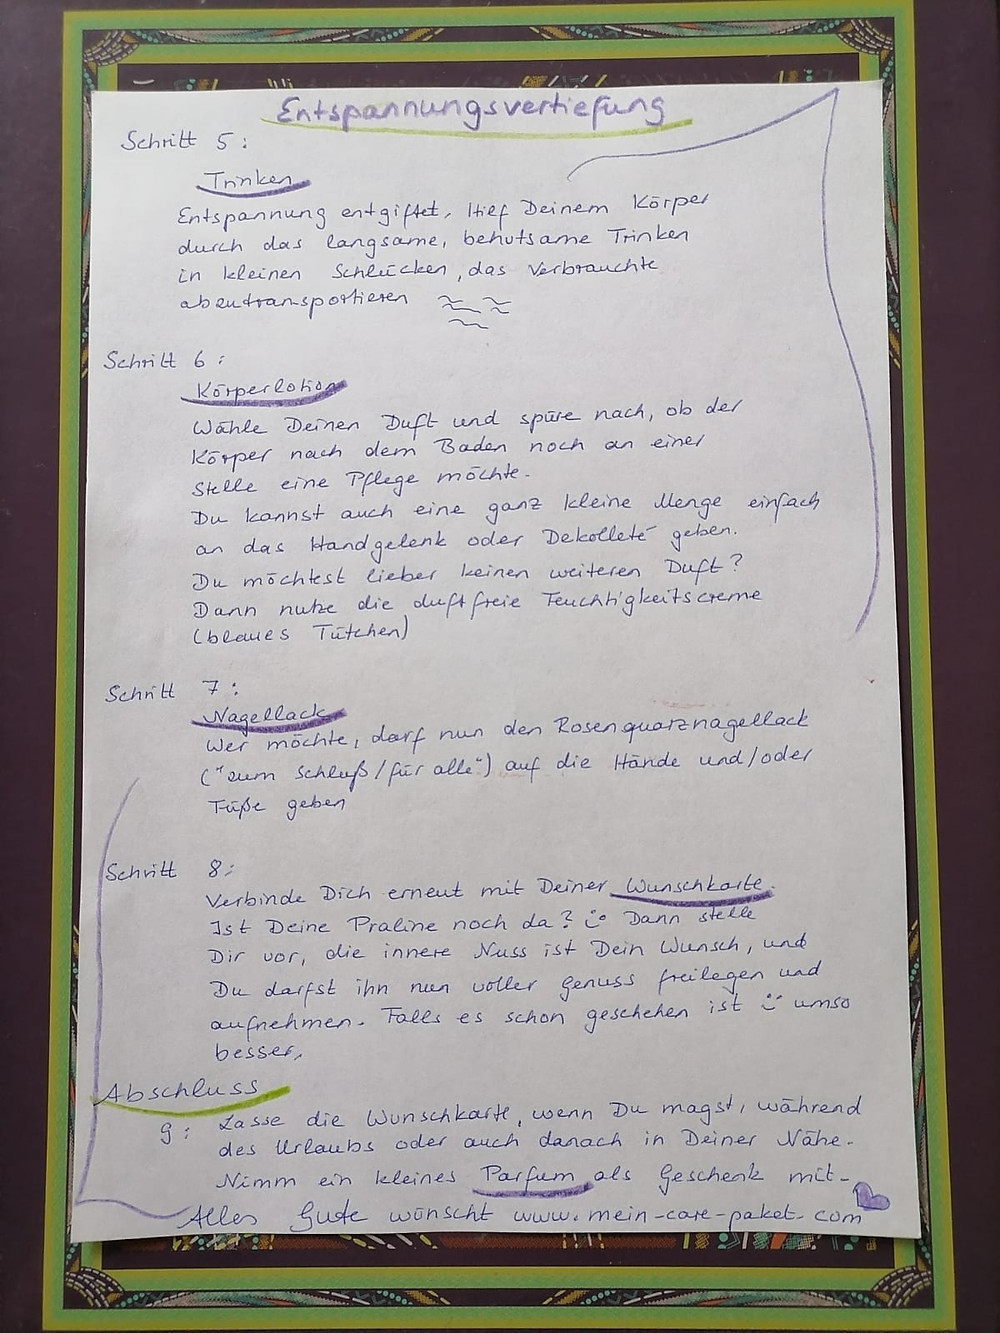 Entspannungsvertiefung
Schritt 5:
Trinken
Entspannung entgiftet. Hilf Deinem Körper
durch das langsame, behutsame Trinken
in kleinen Schlücken, das Verbrauchte
abzutransportieren
Schritt 6:
Körperlotion
Wähle Deinen Duft und spüre nach, ob der
Körper nach dem Baden noch an einer
Stelle eine Pflege möchte.
Du kannst auch eine ganz kleine Menge einfach
an das Handgelenk oder Dekolleté geben.
Du möchtest lieber keinen weiteren Duft?
Dann nutze die duftfreie Feuchtigkeitscreme
(blaues Tütchen)
Schritt 7:
Nagellack
Wer möchte, darf nun den Rosenquarznagellack
("zum Schluß/für alle") auf die Hände und/oder
Füße geben
Schritt 8:
Verbinde Dich erneut mit Deiner Wunschkarte.
Ist Deine Praline noch da? Dann stelle
Dir vor, die innere Nuss ist Dein Wunsch, und
Du darfst ihn nun voller Genuss freilegen und
aufnehmen. Falls es schon geschehen ist umso
besser.
Abschluss
9: Lasse die Wunschkarte, wenn Du magst, während
des Urlaubs oder auch danach in Deiner Nähe.
Nimm ein kleines Parfum als Geschenk mit.
Alles Gute wünscht www.mein-care-paket.com